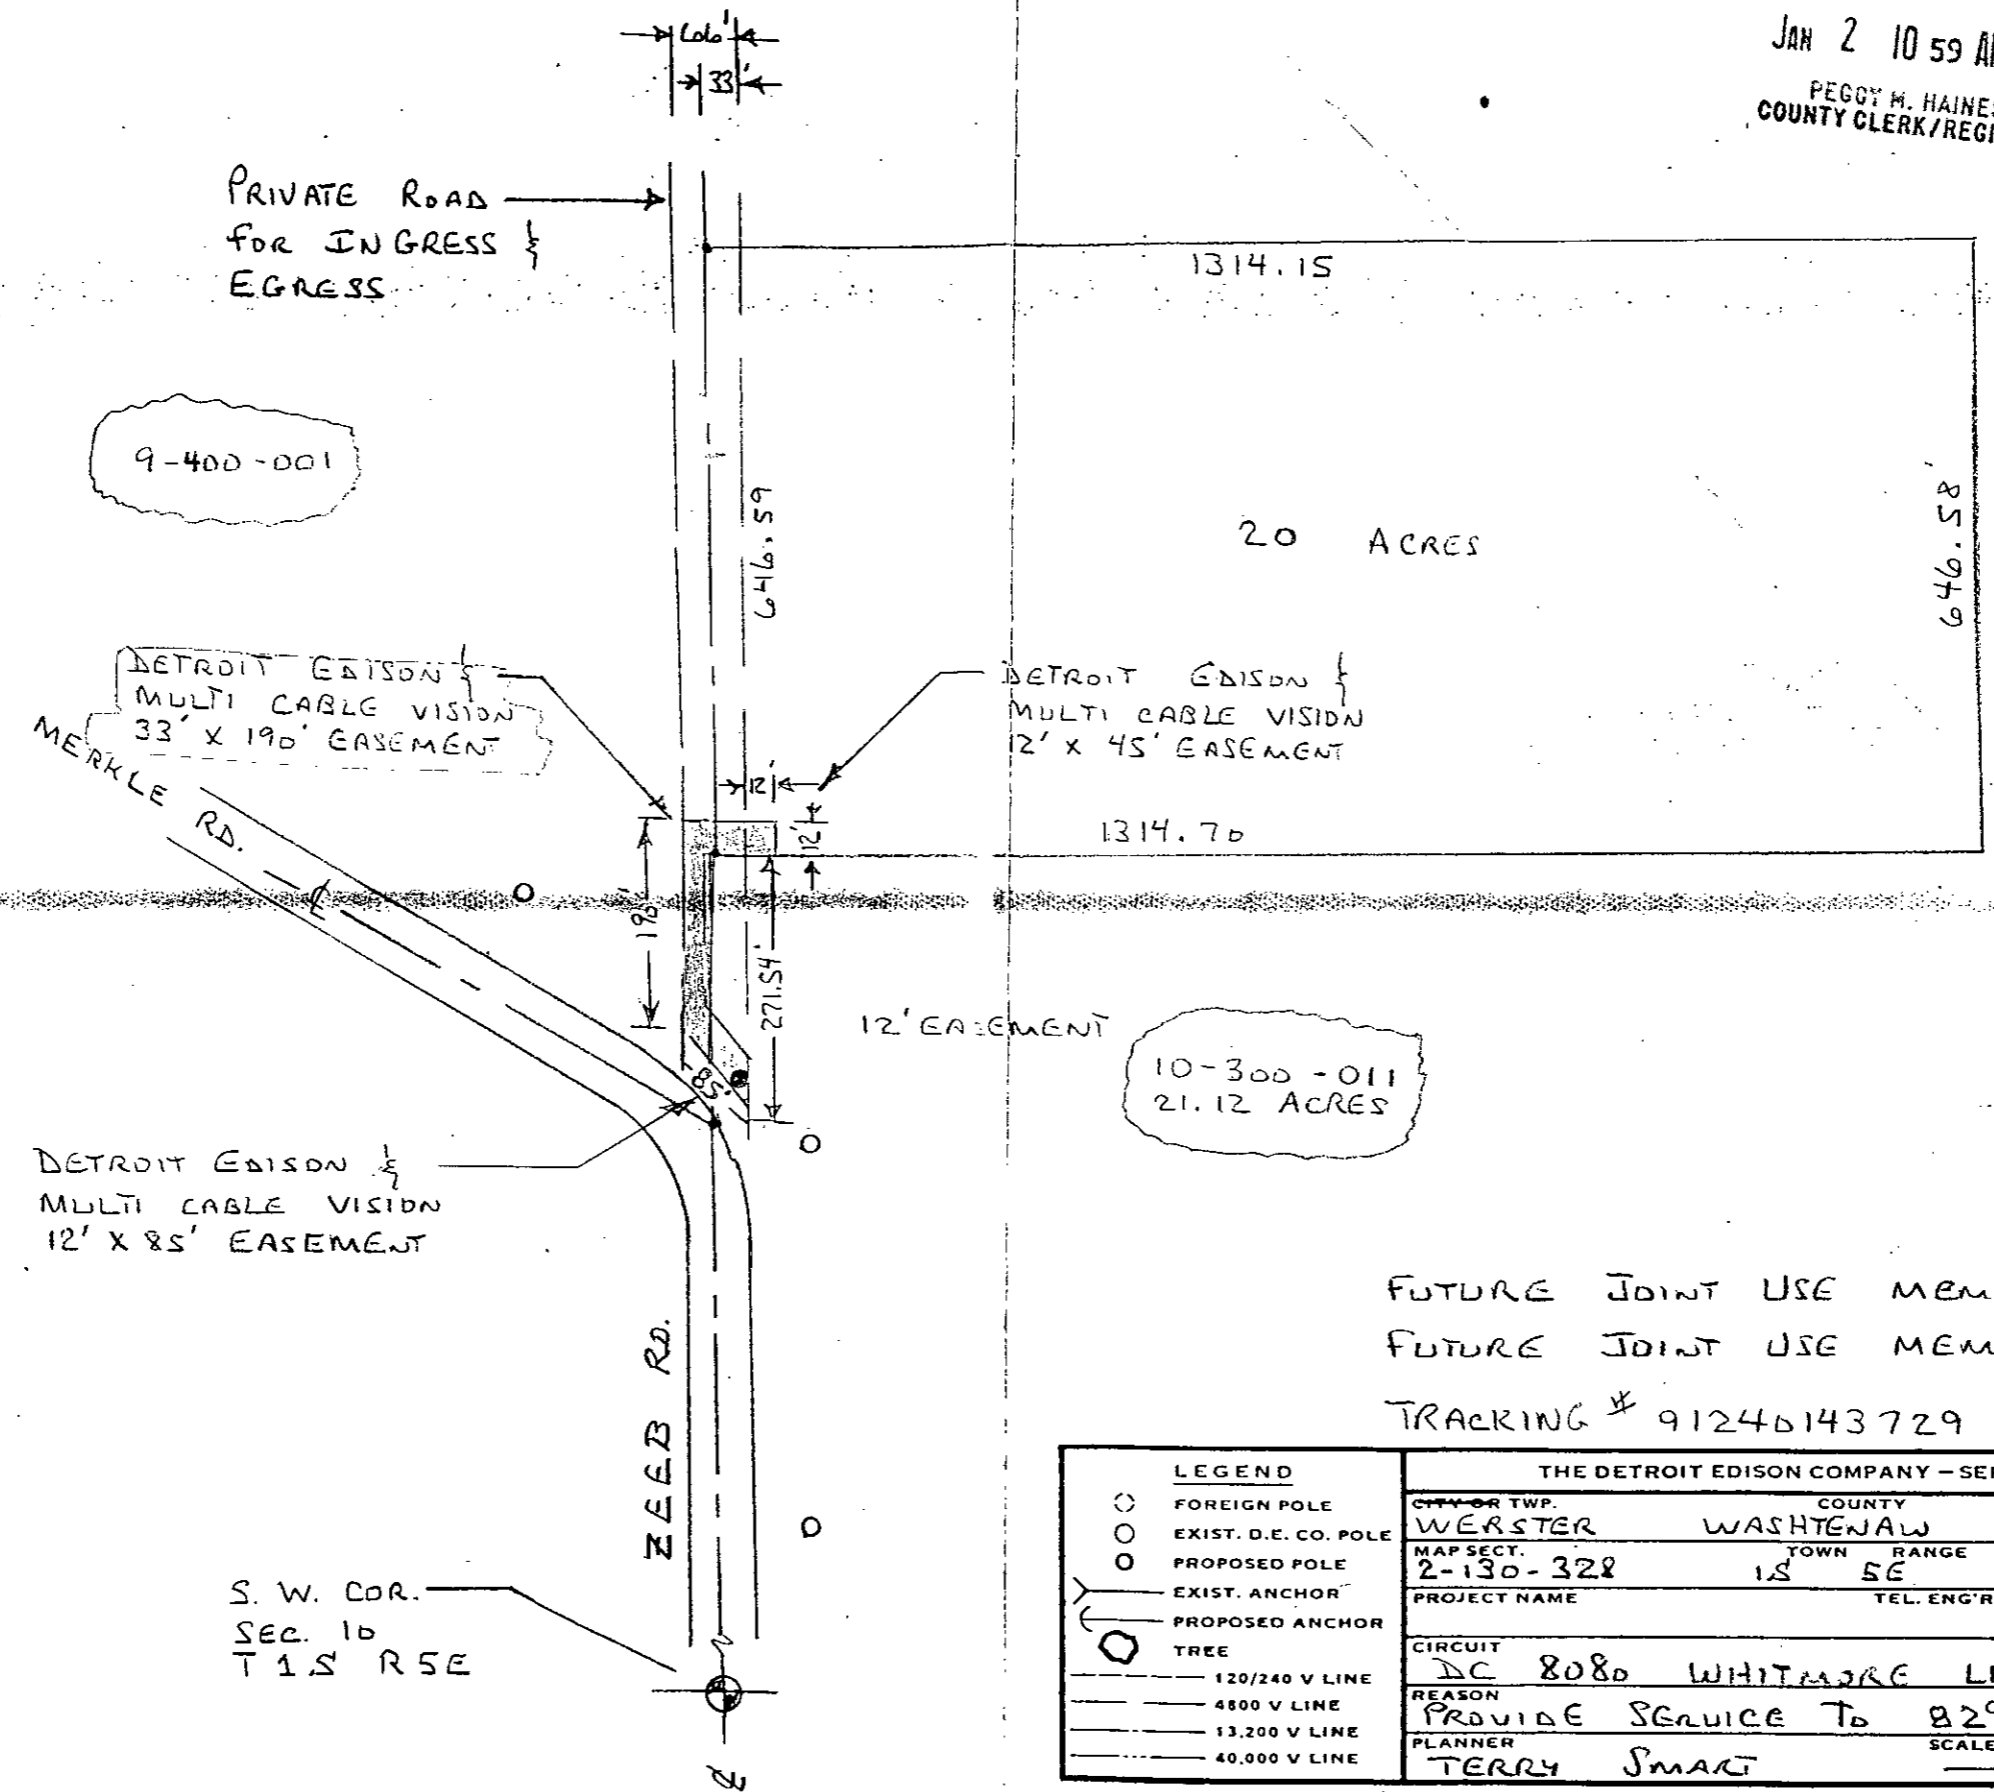 66'
33'
JAN 2 10 59 A
PEGGY M. HAINES
COUNTY CLERK/REGI
PRIVATE ROAD
FOR INGRESS &
EGRESS
1314.15
9-400-001
646.59
20 ACRES
646.58'
DETROIT EDISON &
MULTI CABLE VISION
33' X 190' EASEMENT
DETROIT EDISON &
MULTI CABLE VISION
12' X 45' EASEMENT
MERKLE RD.
12'
12'
1314.70
190'
271.54'
12' EASEMENT
85'
10-300-011
21.12 ACRES
DETROIT EDISON &
MULTI CABLE VISION
12' X 85' EASEMENT
FUTURE JOINT USE MEM
FUTURE JOINT USE MEM
ZEEB RD.
TRACKING # 91240143729
S. W. COR.
SEC. 10
T 1 S R 5E
LEGEND
FOREIGN POLE
EXIST. D.E. CO. POLE
PROPOSED POLE
EXIST. ANCHOR
PROPOSED ANCHOR
TREE
120/240 V LINE
4800 V LINE
13,200 V LINE
40,000 V LINE
THE DETROIT EDISON COMPANY – SE
CITY OR TWP. COUNTY
WERSTER WASHTENAW
MAP SECT. TOWN RANGE
2-130-328 1S 5E
PROJECT NAME TEL. ENG'R
CIRCUIT
DC 8080 WHITMORE L
REASON
PROVIDE SERVICE TO 829
PLANNER SCALE
TERRY SMART